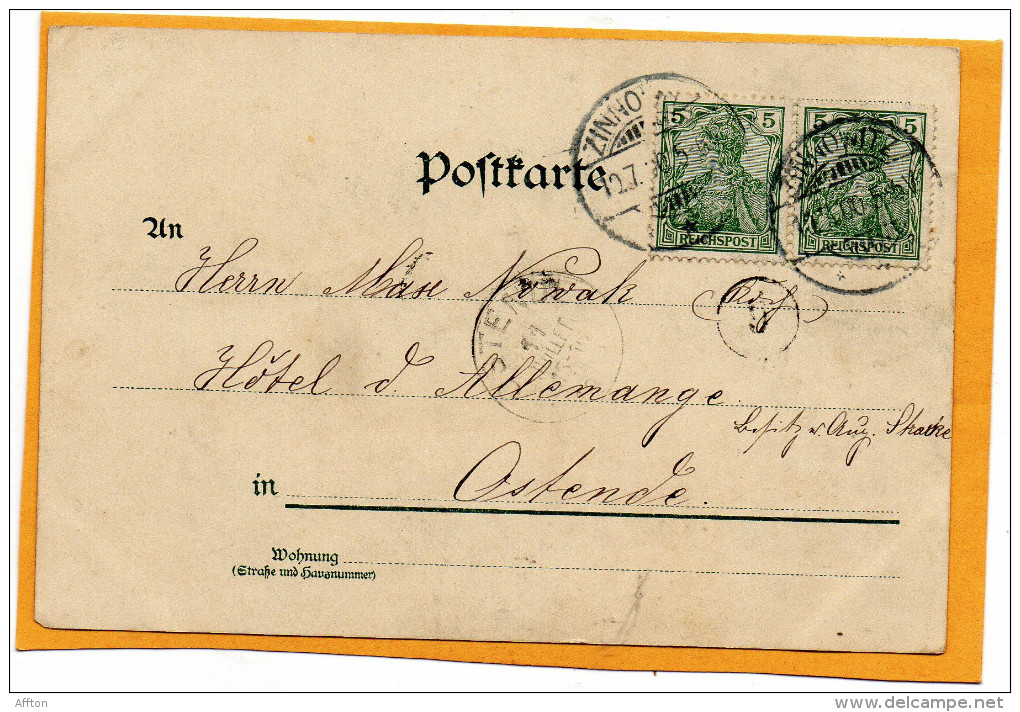 ZINNO
5 5
5 5
ZINNOWITZ
REICHSPOST
REICHSPOST
Postkarte
An
Herrn Max Nowak
Hôtel d'Allemange
Besitz v. Aug. Starke
in Ostende.
Wohnung
(Straße und Hausnummer)
Affton
www.delcampe.net